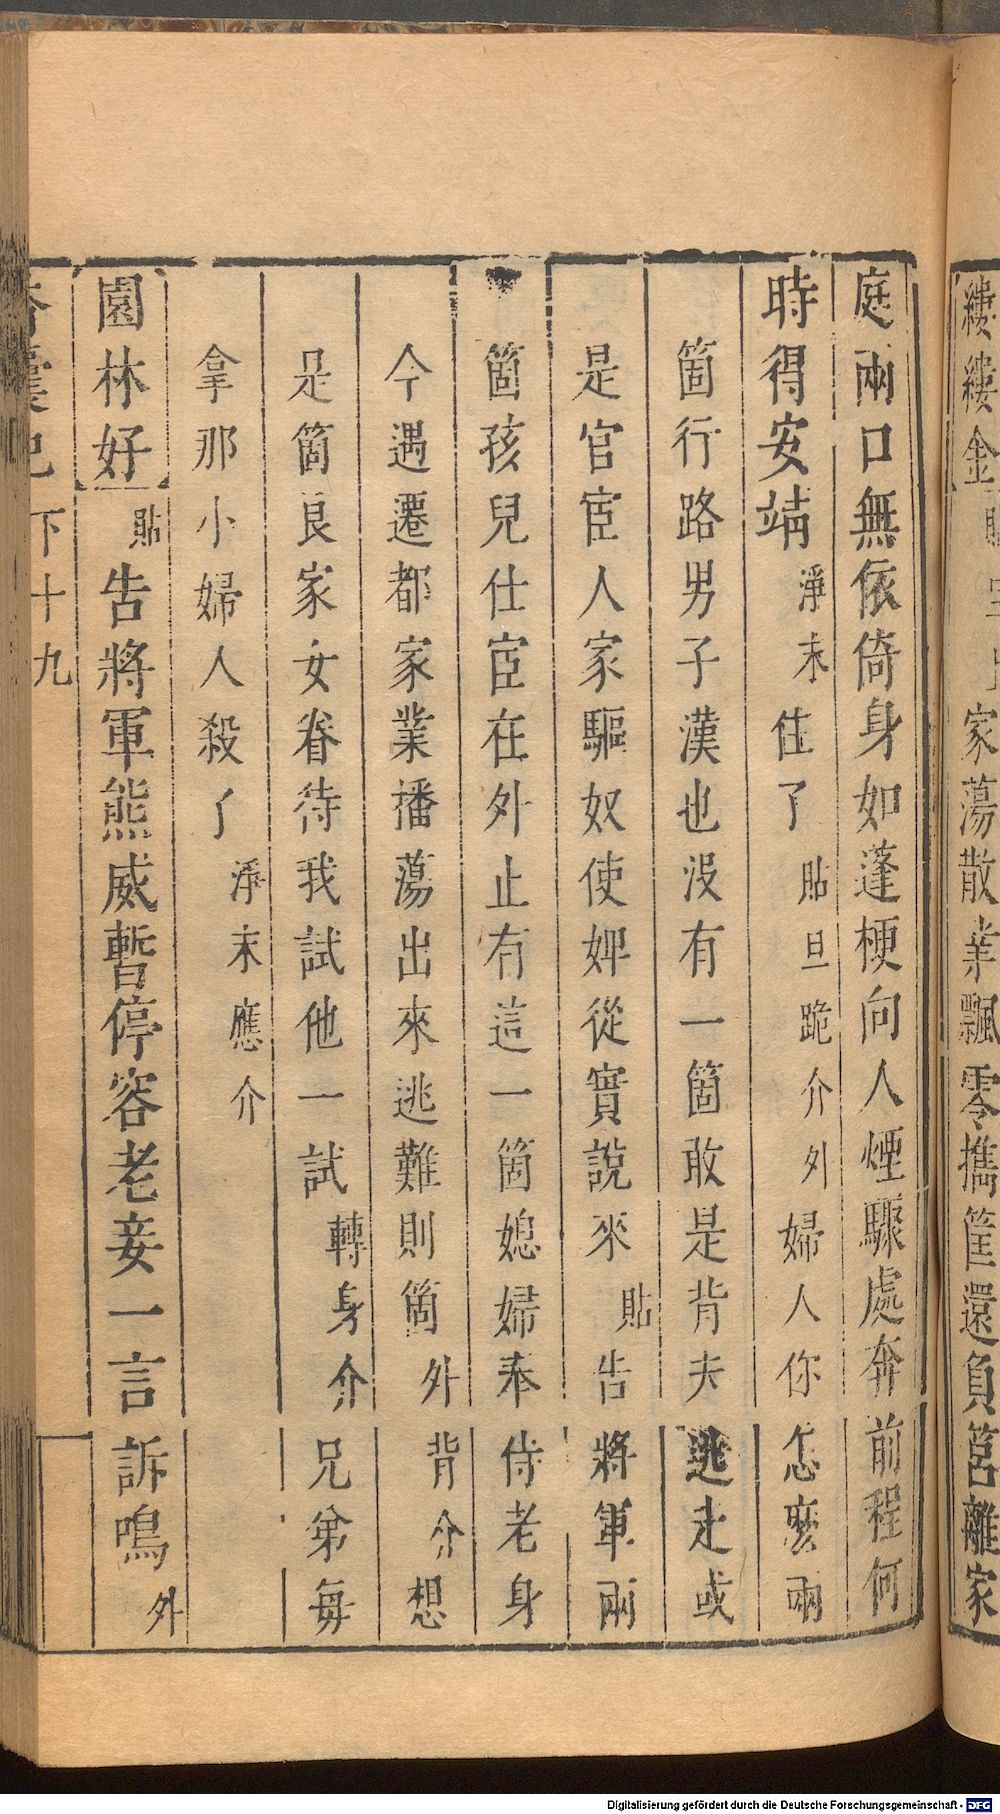 縷縷金
家蕩散業飄零攜筐還負筥離家
庭兩口無依倚身如蓬梗向人煙驟處奔前程何
時得安靖淨末住了貼旦跪介外婦人你怎麼兩
箇行路男子漢也沒有一箇敢是背夫逃走或
是官宦人家驅奴使婢從實說來貼告將軍兩
箇孩兒仕宦在外止有這一箇媳婦奉侍老身
今遇遷都家業播蕩出來逃難則箇外背介想
是箇良家女眷待我試他一試轉身介兄弟每
拿那小婦人殺了淨末應介
園林好貼告將軍熊威暫停容老妾一言訴鳴外
香囊記 下十九
Digitalisierung gefördert durch die Deutsche Forschungsgemeinschaft - DFG